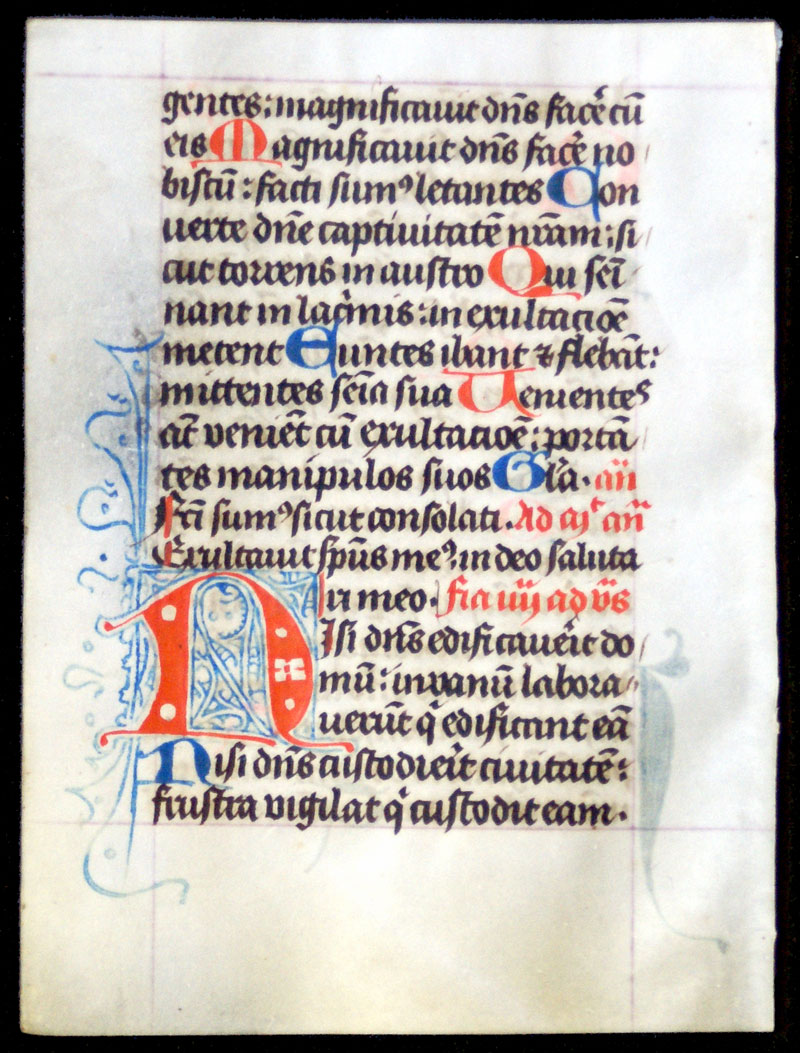 gentes: magnificauit dn̄s facẽ cū
eis Magnificauit dn̄s facẽ no
biscū: facti sumꝰ letantes Con
uerte dn̄e captiuitatē nr̄am: si
cut torrens in austro Qui seī
nant in lac̓mis: in exultacioē
metent Euntes ibant ⁊ flebāt:
mittentes seīa sua Uenientes
aūt veniēt cū exultacioē: portā
tes manipulos suos Gl̄a. an̄
Fc̄i sumꝰ sicut consolati. Ad an̄
Exultauit sp̄us meꝰ in deo saluta
ri meo. fīa iiij ad v̄s
Nisi dn̄s edificauer̄it do
mū: in vanū labora
uerūt q̓ edificant eā
Nisi dn̄s custodier̄it ciuitatē:
frustra vigilat q̓ custodit eam.